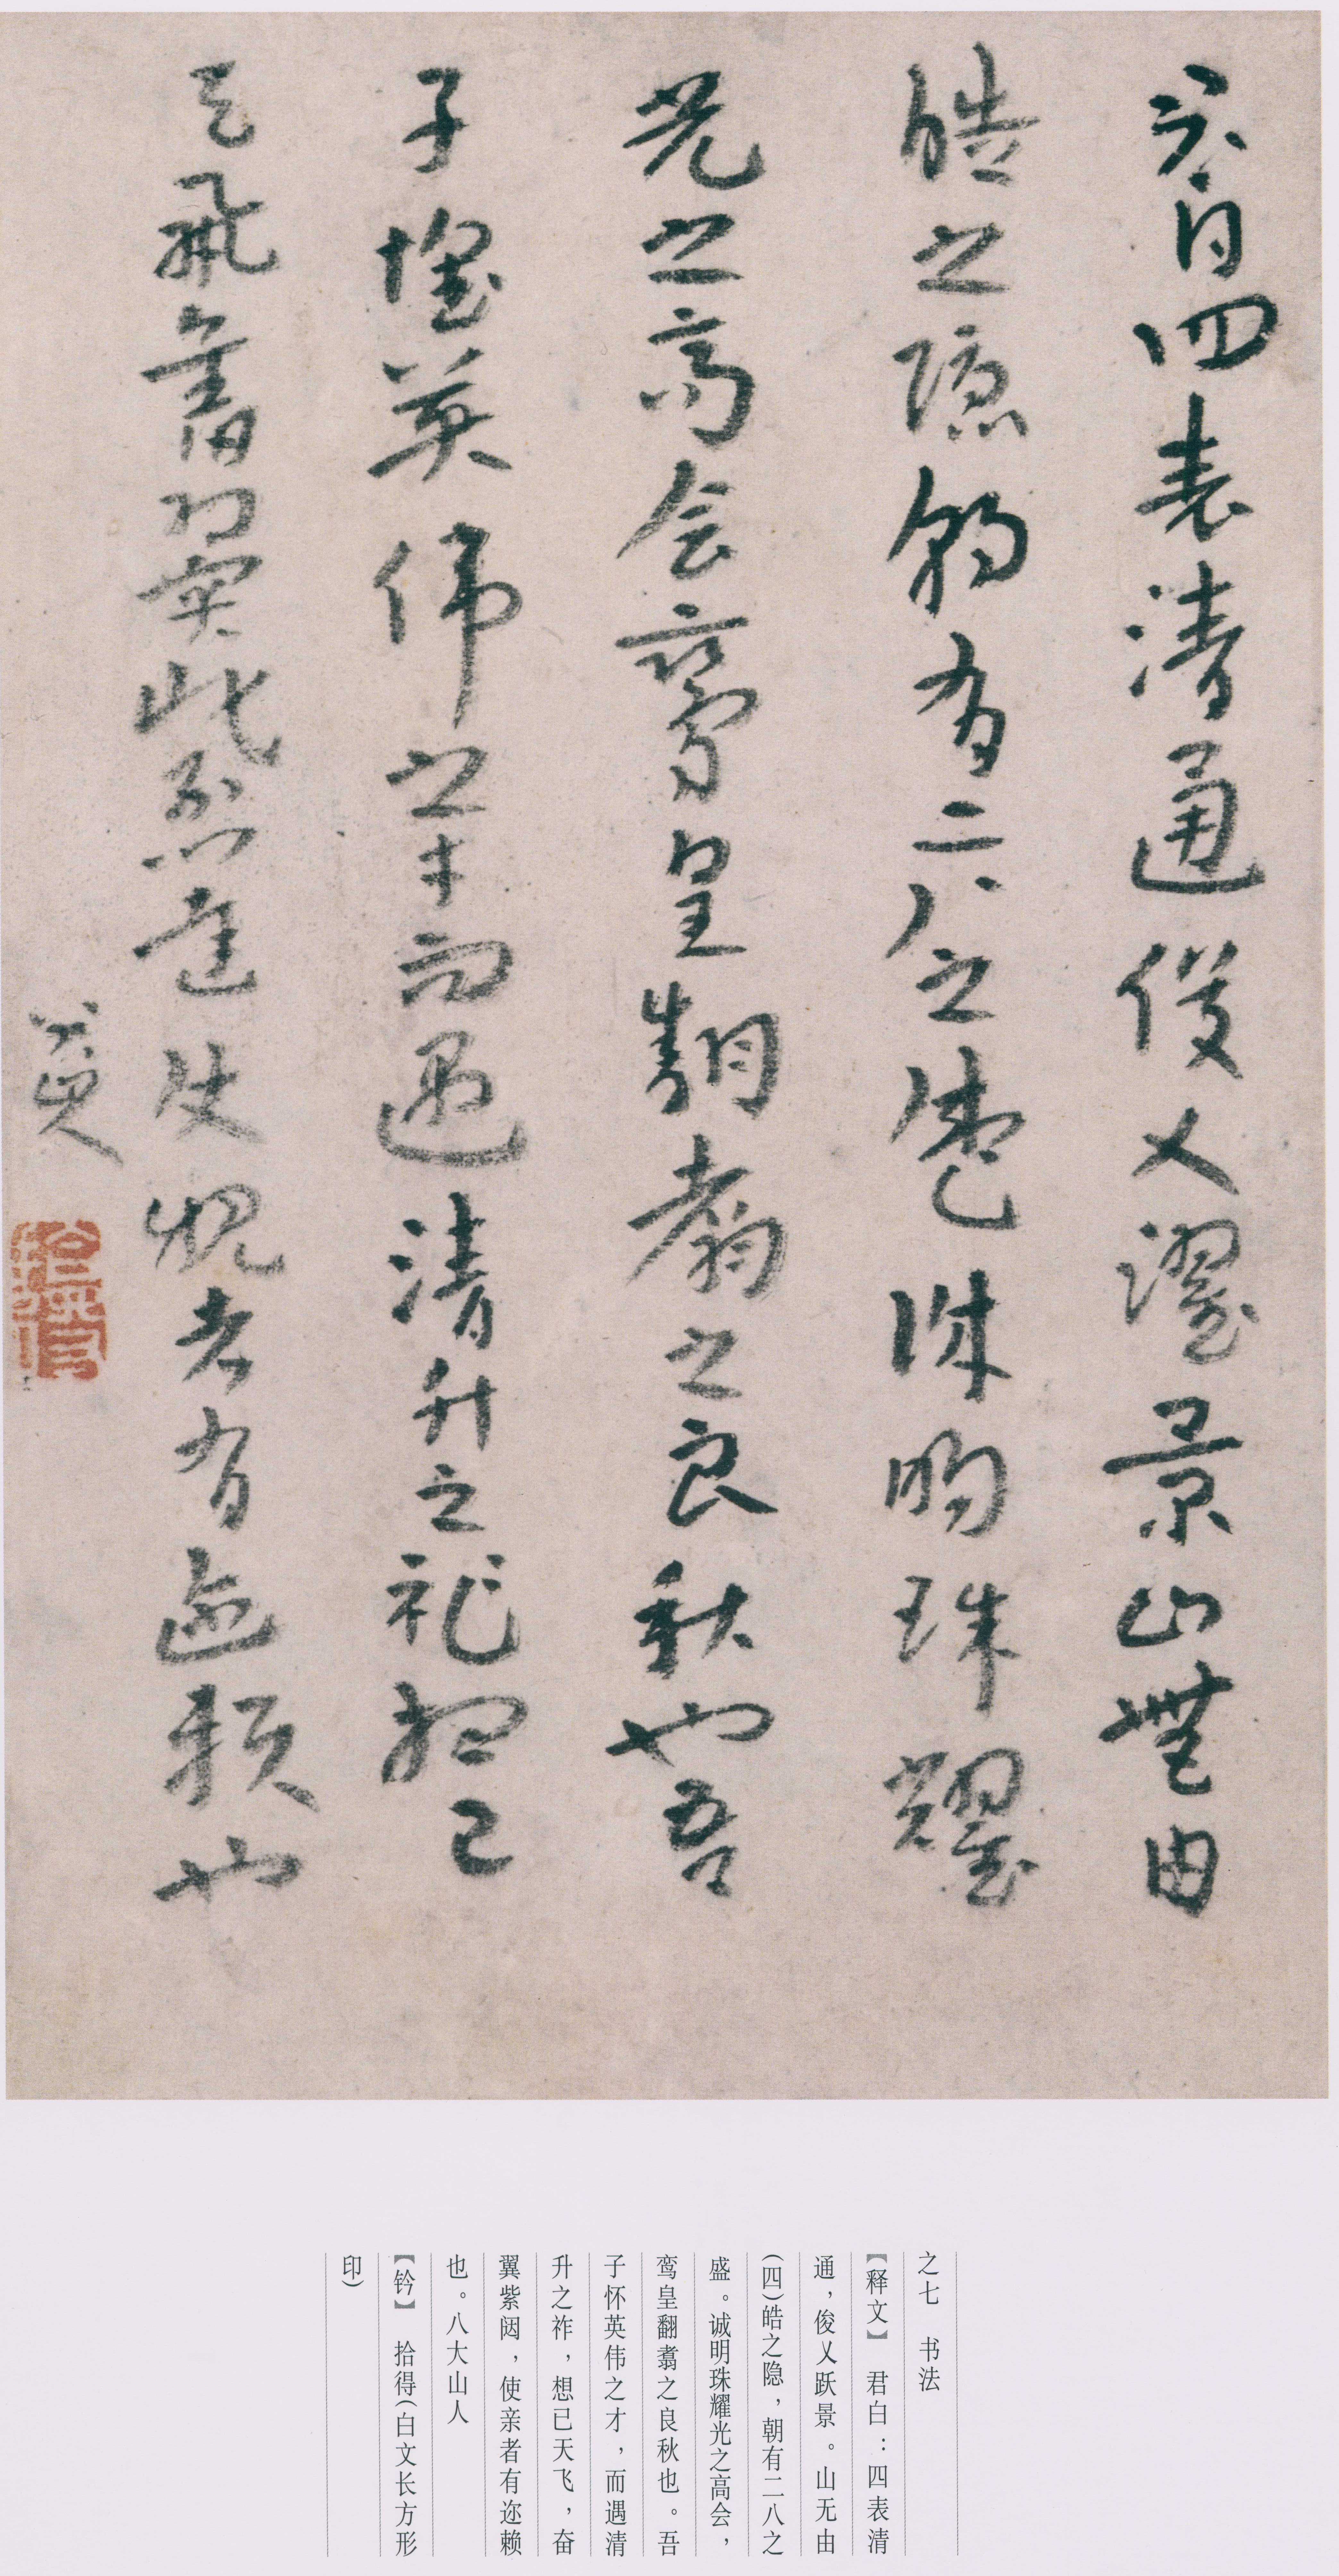 君白四表清通俊乂濯景山無由
皓之隱朝有二八之盛誠明珠耀
光之高会鸞皇翻翥之良秋也吾
子懷英偉之才而遇清升之祚想已
天飛奮翼紫闼使親者有迩賴也
八大山人
之七 书法
【释文】 君白：四表清
通，俊乂跃景。山无由
(四)皓之隐，朝有二八之
盛。诚明珠耀光之高会，
鸾皇翻翥之良秋也。吾
子怀英伟之才，而遇清
升之祚，想已天飞，奋
翼紫闼，使亲者有迩赖
也。八大山人
【钤】 拾得(白文长方形
印)